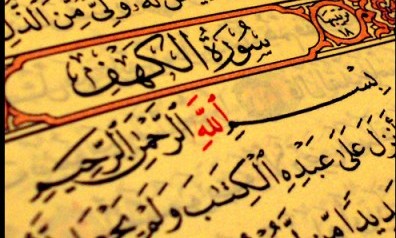 وَلِىٌّ مِّنَ ٱلذُّلِّ
سُورَةُ الكَهْفِ
بِسْمِ ٱللَّهِ ٱلرَّحْمَٰنِ ٱلرَّحِيمِ
أَنزَلَ عَلَىٰ عَبْدِهِ ٱلْكِتَٰبَ وَلَمْ يَجْعَل